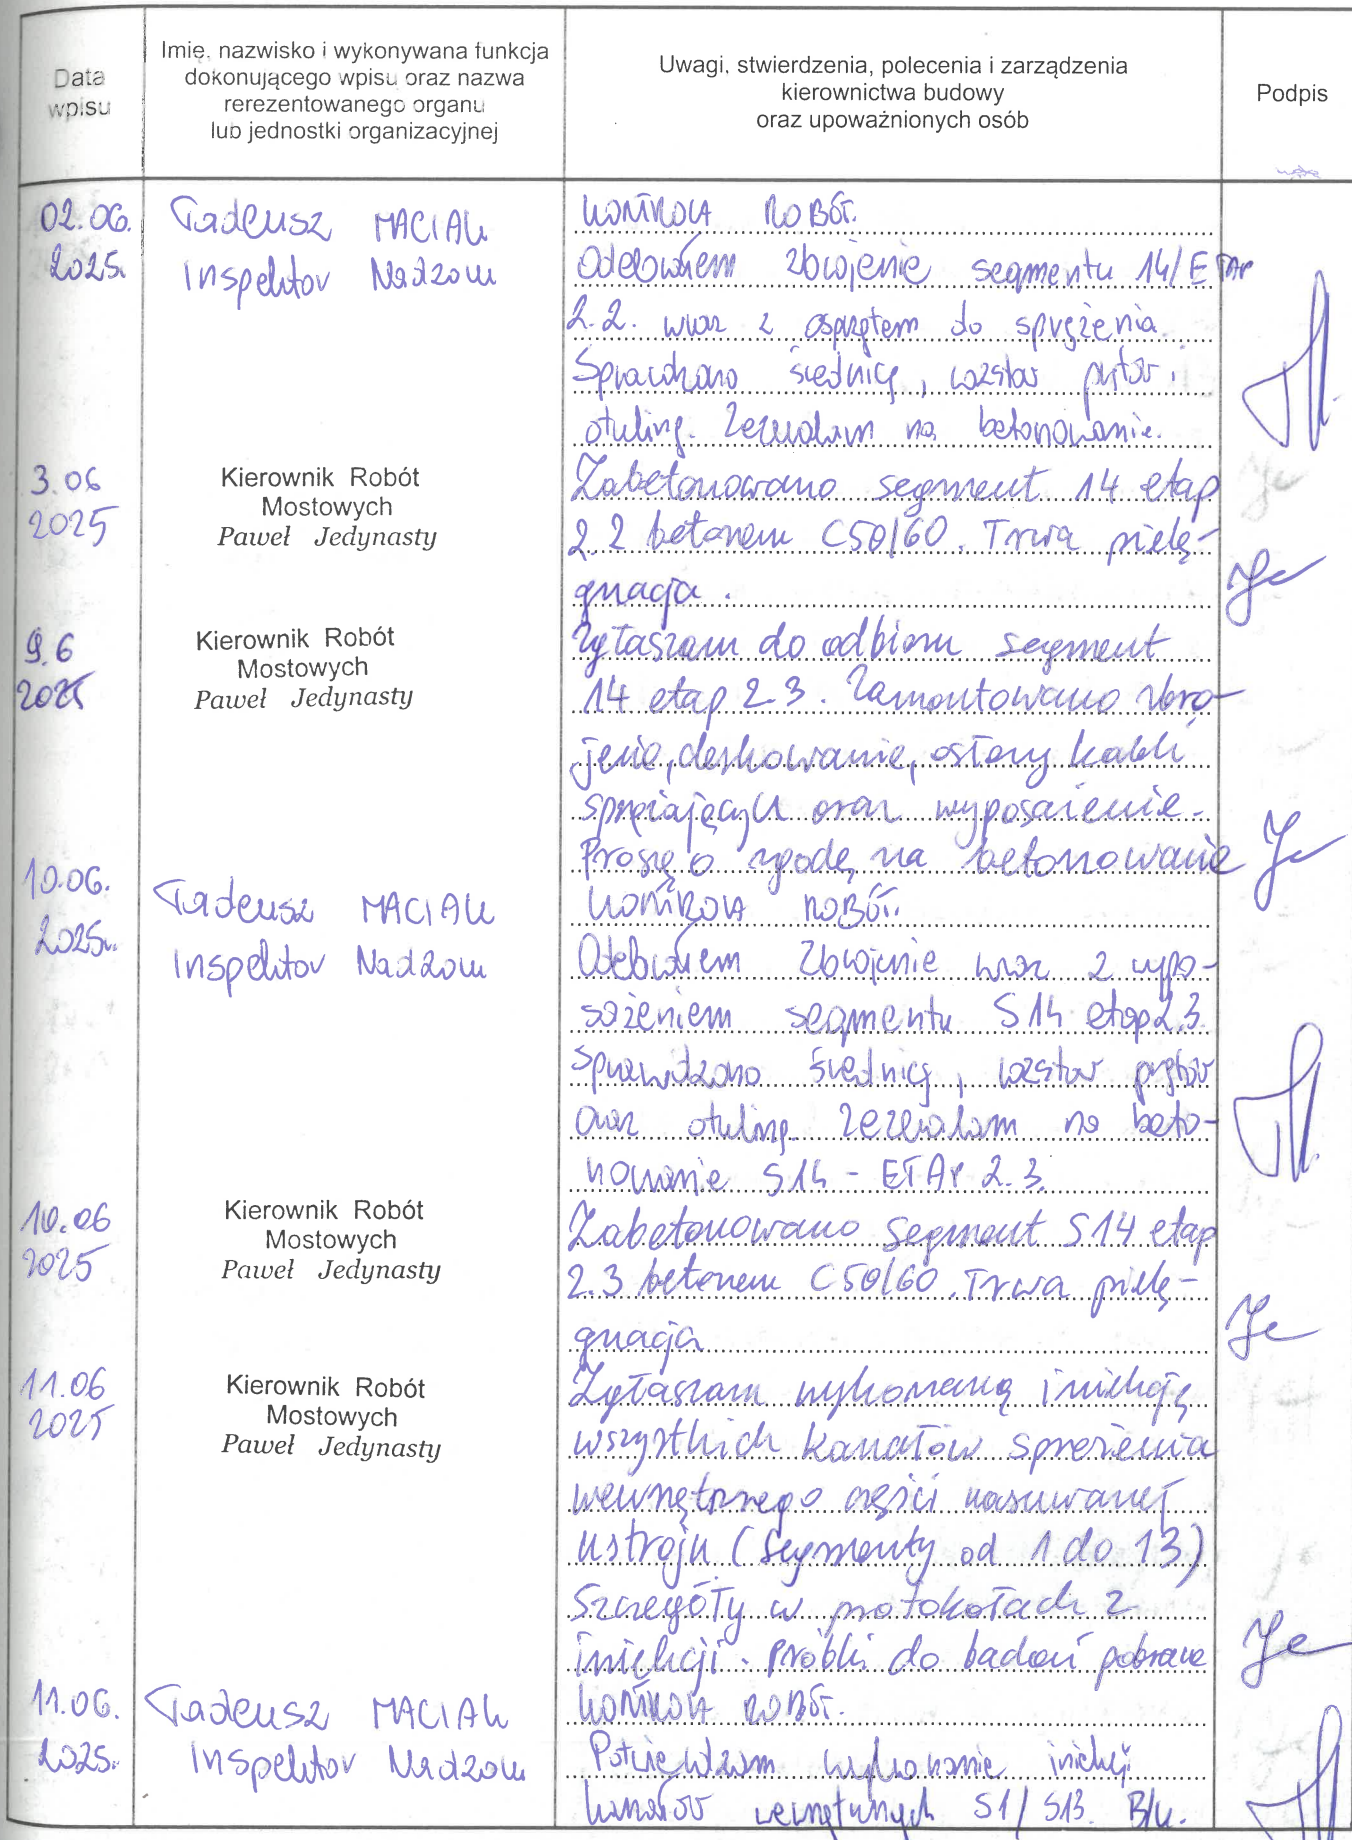 Data
wpisu
Imię, nazwisko i wykonywana funkcja
dokonującego wpisu oraz nazwa
rerezentowanego organu
lub jednostki organizacyjnej
Uwagi, stwierdzenia, polecenia i zarządzenia
kierownictwa budowy
oraz upoważnionych osób
Podpis
02.06.
2025r.
Tadeusz MACIAK
Inspektor Nadzoru
KONTROLA ROBÓT.
Odebrałem zbrojenie segmentu 14/ETAP
2.2. wraz z osprzętem do sprężenia.
Sprawdzono średnicę, rozstaw prętów,
otulinę. Zezwalam na betonowanie.
3.06
2025
Kierownik Robót
Mostowych
Paweł Jedynasty
Zabetonowano segment 14 etap
2.2 betonem C50/60. Trwa pielę-
gnacja.
9.6
2025
Kierownik Robót
Mostowych
Paweł Jedynasty
Zgłaszam do odbioru segment
14 etap 2.3. Zamontowano zbro-
jenie, deskowanie, osłony kabli
sprężających oraz wyposażenie.
Proszę o zgodę na betonowanie
10.06.
2025r.
Tadeusz MACIAK
Inspektor Nadzoru
KONTROLA ROBÓT.
Odebrałem zbrojenie wraz z wypo-
sażeniem segmentu S14 etap 2.3.
Sprawdzono średnicę, rozstaw prętów
oraz otulinę. Zezwalam na beto-
nowanie S14 - ETAP 2.3.
10.06
2025
Kierownik Robót
Mostowych
Paweł Jedynasty
Zabetonowano segment S14 etap
2.3 betonem C50/60. Trwa pielę-
gnacja
11.06
2025
Kierownik Robót
Mostowych
Paweł Jedynasty
Zgłaszam wykonaną iniekcję
wszystkich kanałów sprężenia
wewnętrznego części nasuwanej
ustroju (segmenty od 1 do 13)
Szczegóły w protokołach z
iniekcji. Próbki do badań pobrane
11.06.
2025r.
Tadeusz MACIAK
Inspektor Nadzoru
KONTROLA ROBÓT.
Potwierdzam wykonanie iniekcji
kanałów wewnętrznych S1/S13. B/u.